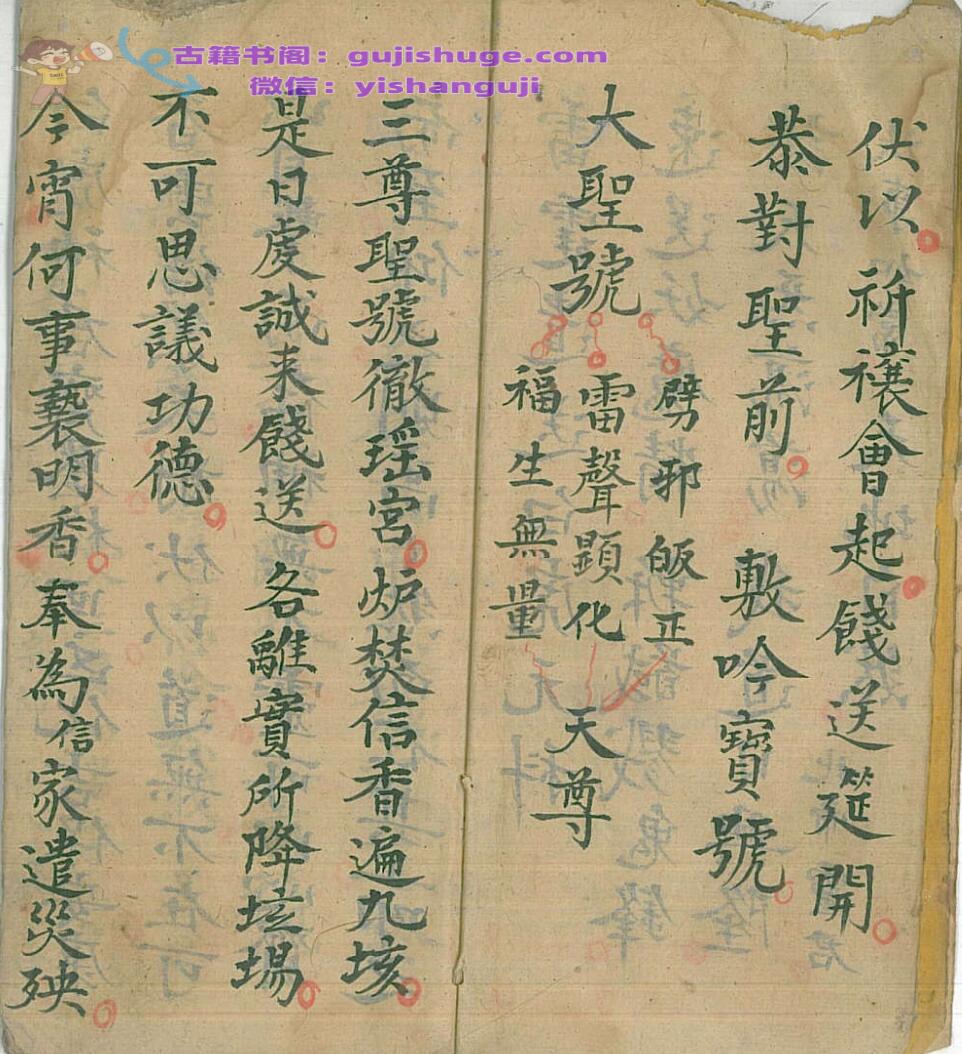 古籍书阁：gujishuge.com
微信：yishanguji
伏以祈禳會起餞送筵開
恭對聖前敷吟寶號
大聖號
劈邪皈正
雷聲顕化
福生無量
天尊
三尊聖號徹瑶宮炉焚信香遍九垓
是日虔誠来餞送各離寳所降坛場
不可思議功德
今宵何事爇明香奉為信家遣災殃